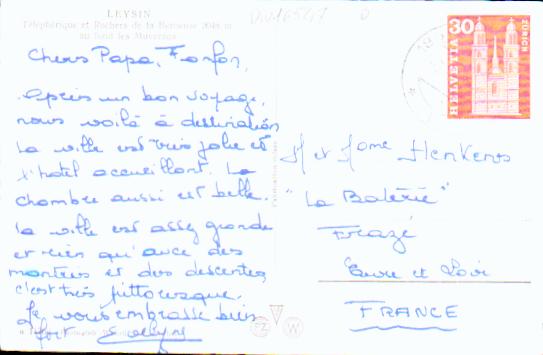 LEYSIN
Téléphérique et Rochers de la Berneuse 2048 m
au fond les Muverans
Chers Papa, Fonfon,
Après un bon voyage,
nous voilà à destination
La ville est très jolie et
l'hôtel accueillant. La
chambre aussi est belle.
La ville est assez grande
et rien qu'avec des
montées et des descentes
c'est très pittoresque.
Je vous embrasse bien
fort Evelyne
30
HELVETIA
ZÜRICH
M et Mme Henkens
"La Baterie"
Frazé
Eure et Loir
FRANCE